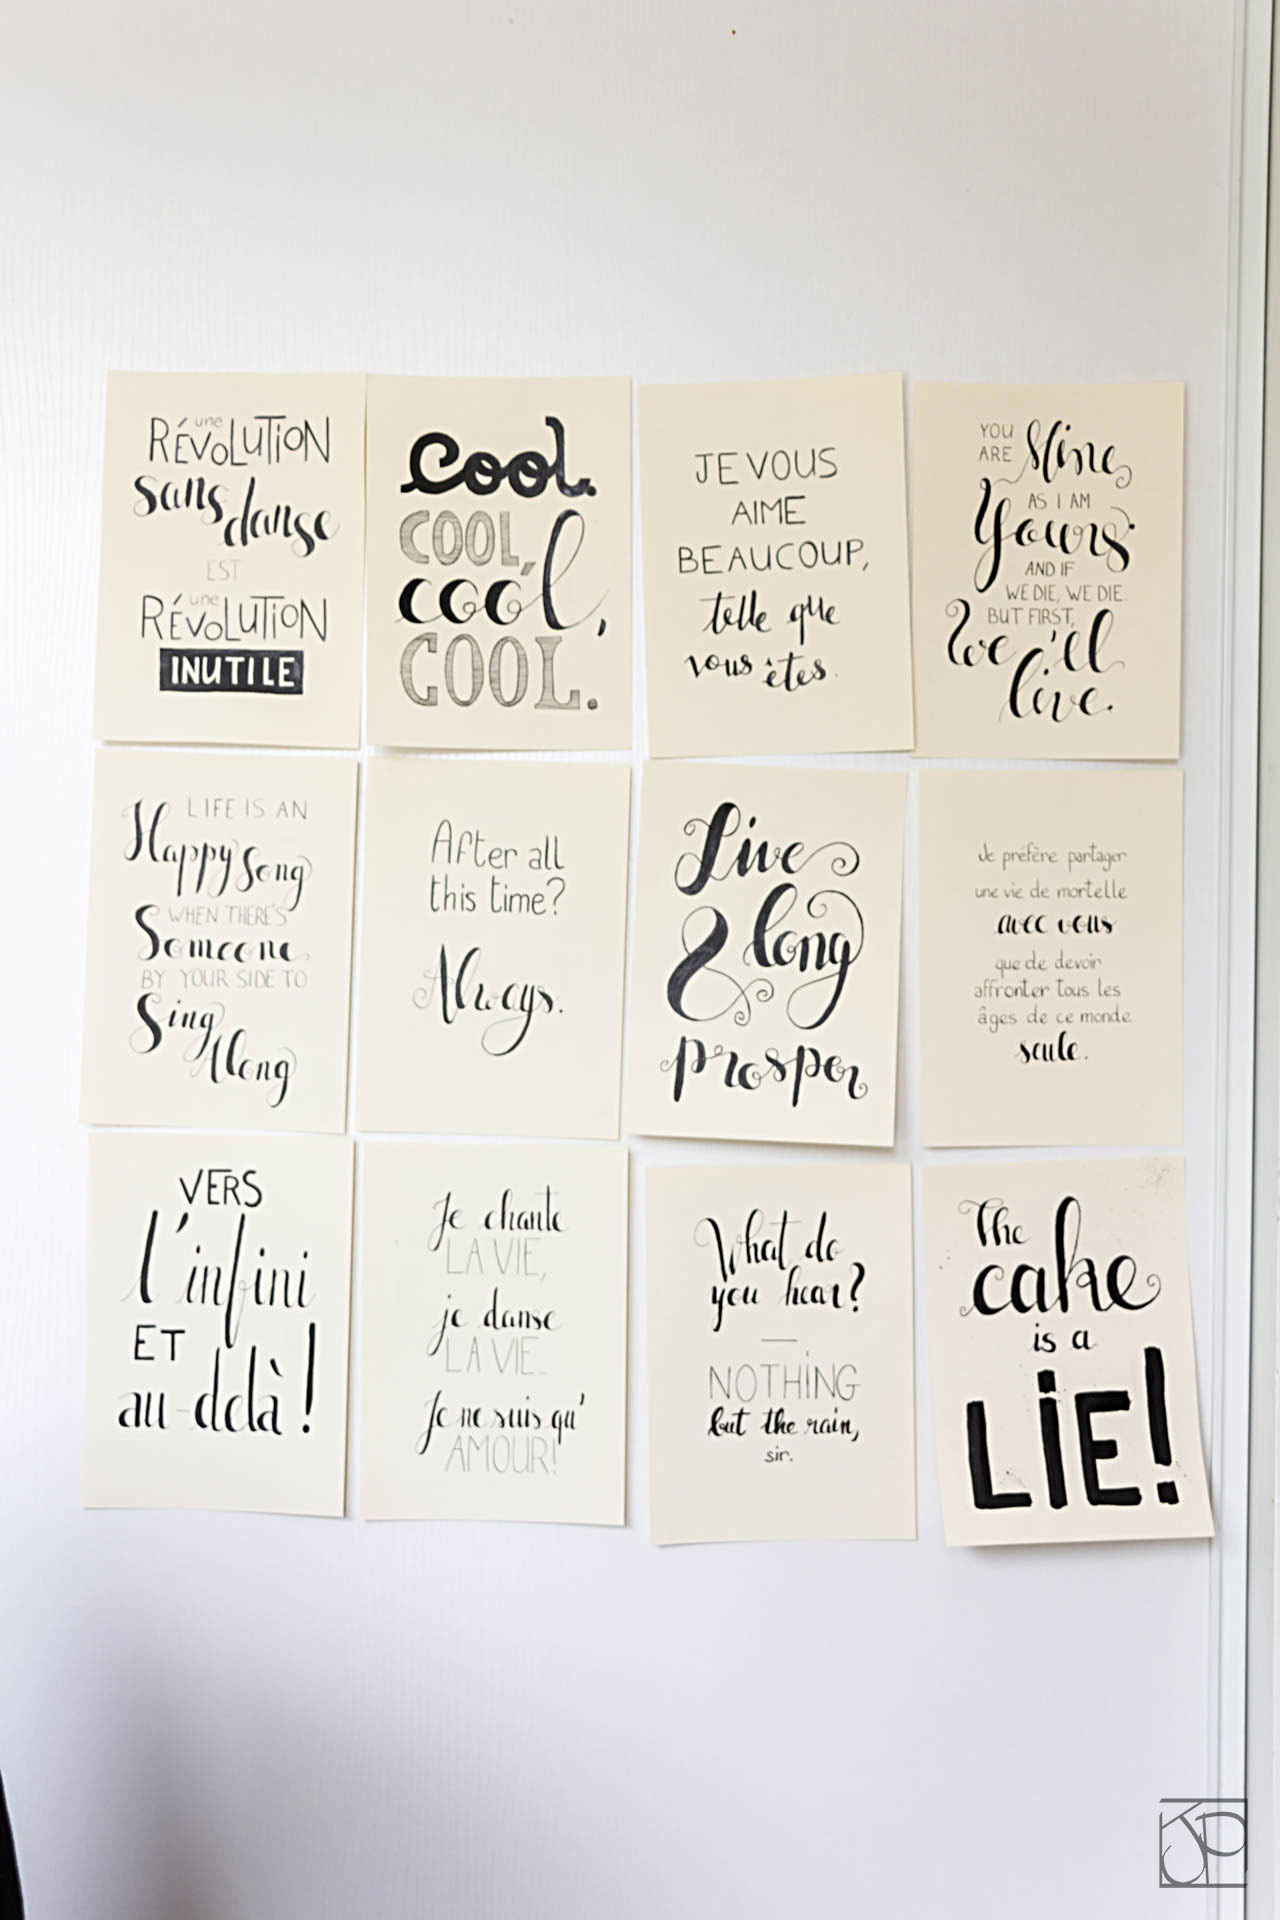 une
RÉVOLUTION
sans
danse
EST
une
RÉVOLUTION
INUTILE
Cool.
COOL,
cool,
COOL.
JE VOUS
AIME
BEAUCOUP,
telle que
vous êtes.
YOU
ARE Mine
AS I AM
Yours.
AND IF
WE DIE, WE DIE.
BUT FIRST,
We'll
live.
LIFE IS AN
Happy Song
WHEN THERE'S
Someone
BY YOUR SIDE TO
Sing
Along
After all
this time?
Always.
Live
& long
prosper
Je préfère partager
une vie de mortelle
avec vous
que de devoir
affronter tous les
âges de ce monde
seule.
VERS
l'infini
ET
au-delà !
Je chante
LA VIE,
je danse
LA VIE.
Je ne suis qu'
AMOUR!
What do
you hear?
—
NOTHING
but the rain,
sir.
The
cake
is a
LIE!
JP